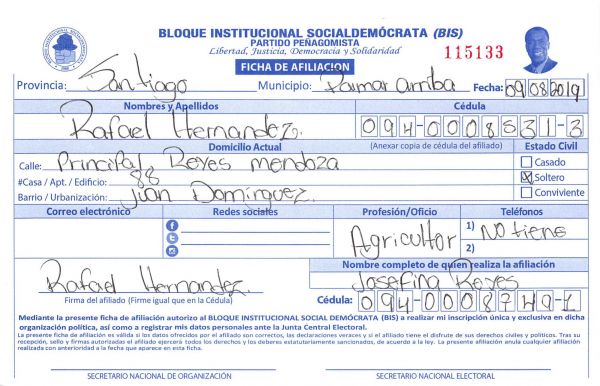 BLOQUE INSTITUCIONAL SOCIALDEMÓCRATA (BIS)
PARTIDO PEÑAGOMISTA
Libertad, Justicia, Democracia y Solidaridad
115133
FICHA DE AFILIACION
Provincia: Santiago Municipio: Palmar arriba Fecha: 09/08/2019
Nombres y Apellidos Cédula
Rafael Hernandez. 094-0008531-3
Domicilio Actual (Anexar copia de cédula del afiliado) Estado Civil
Calle: Principal Reyes mendoza Casado
#Casa / Apt. / Edificio: 88 Soltero
Barrio / Urbanización: Juan Domínguez. Conviviente
Correo electrónico Redes sociales Profesión/Oficio Teléfonos
Agricultor 1) No tiene
2)
Nombre completo de quien realiza la afiliación
Rafael Hernandez. Josefina Reyes
Firma del afiliado (Firme igual que en la Cédula) Cédula: 094-0008749-1
Mediante la presente ficha de afiliación autorizo al BLOQUE INSTITUCIONAL SOCIAL DEMÓCRATA (BIS) a realizar mi inscripción única y exclusiva en dicha
organización política, así como a registrar mis datos personales ante la Junta Central Electoral.
La presente ficha de afiliación es válida si los datos ofrecidos por el afiliado son correctos, las declaraciones veraces y si el afiliado tiene el disfrute de sus derechos civiles y políticos. Tras su
recepción, sello y firmas autorizadas el afiliado ejercerá todos los derechos y los deberes estatutariamente sancionados, de acuerdo a la ley. La presente afiliación anula cualquier afiliación
realizada con anterioridad a la fecha que aparece en esta ficha.
SECRETARIO NACIONAL DE ORGANIZACIÓN SECRETARIO NACIONAL ELECTORAL